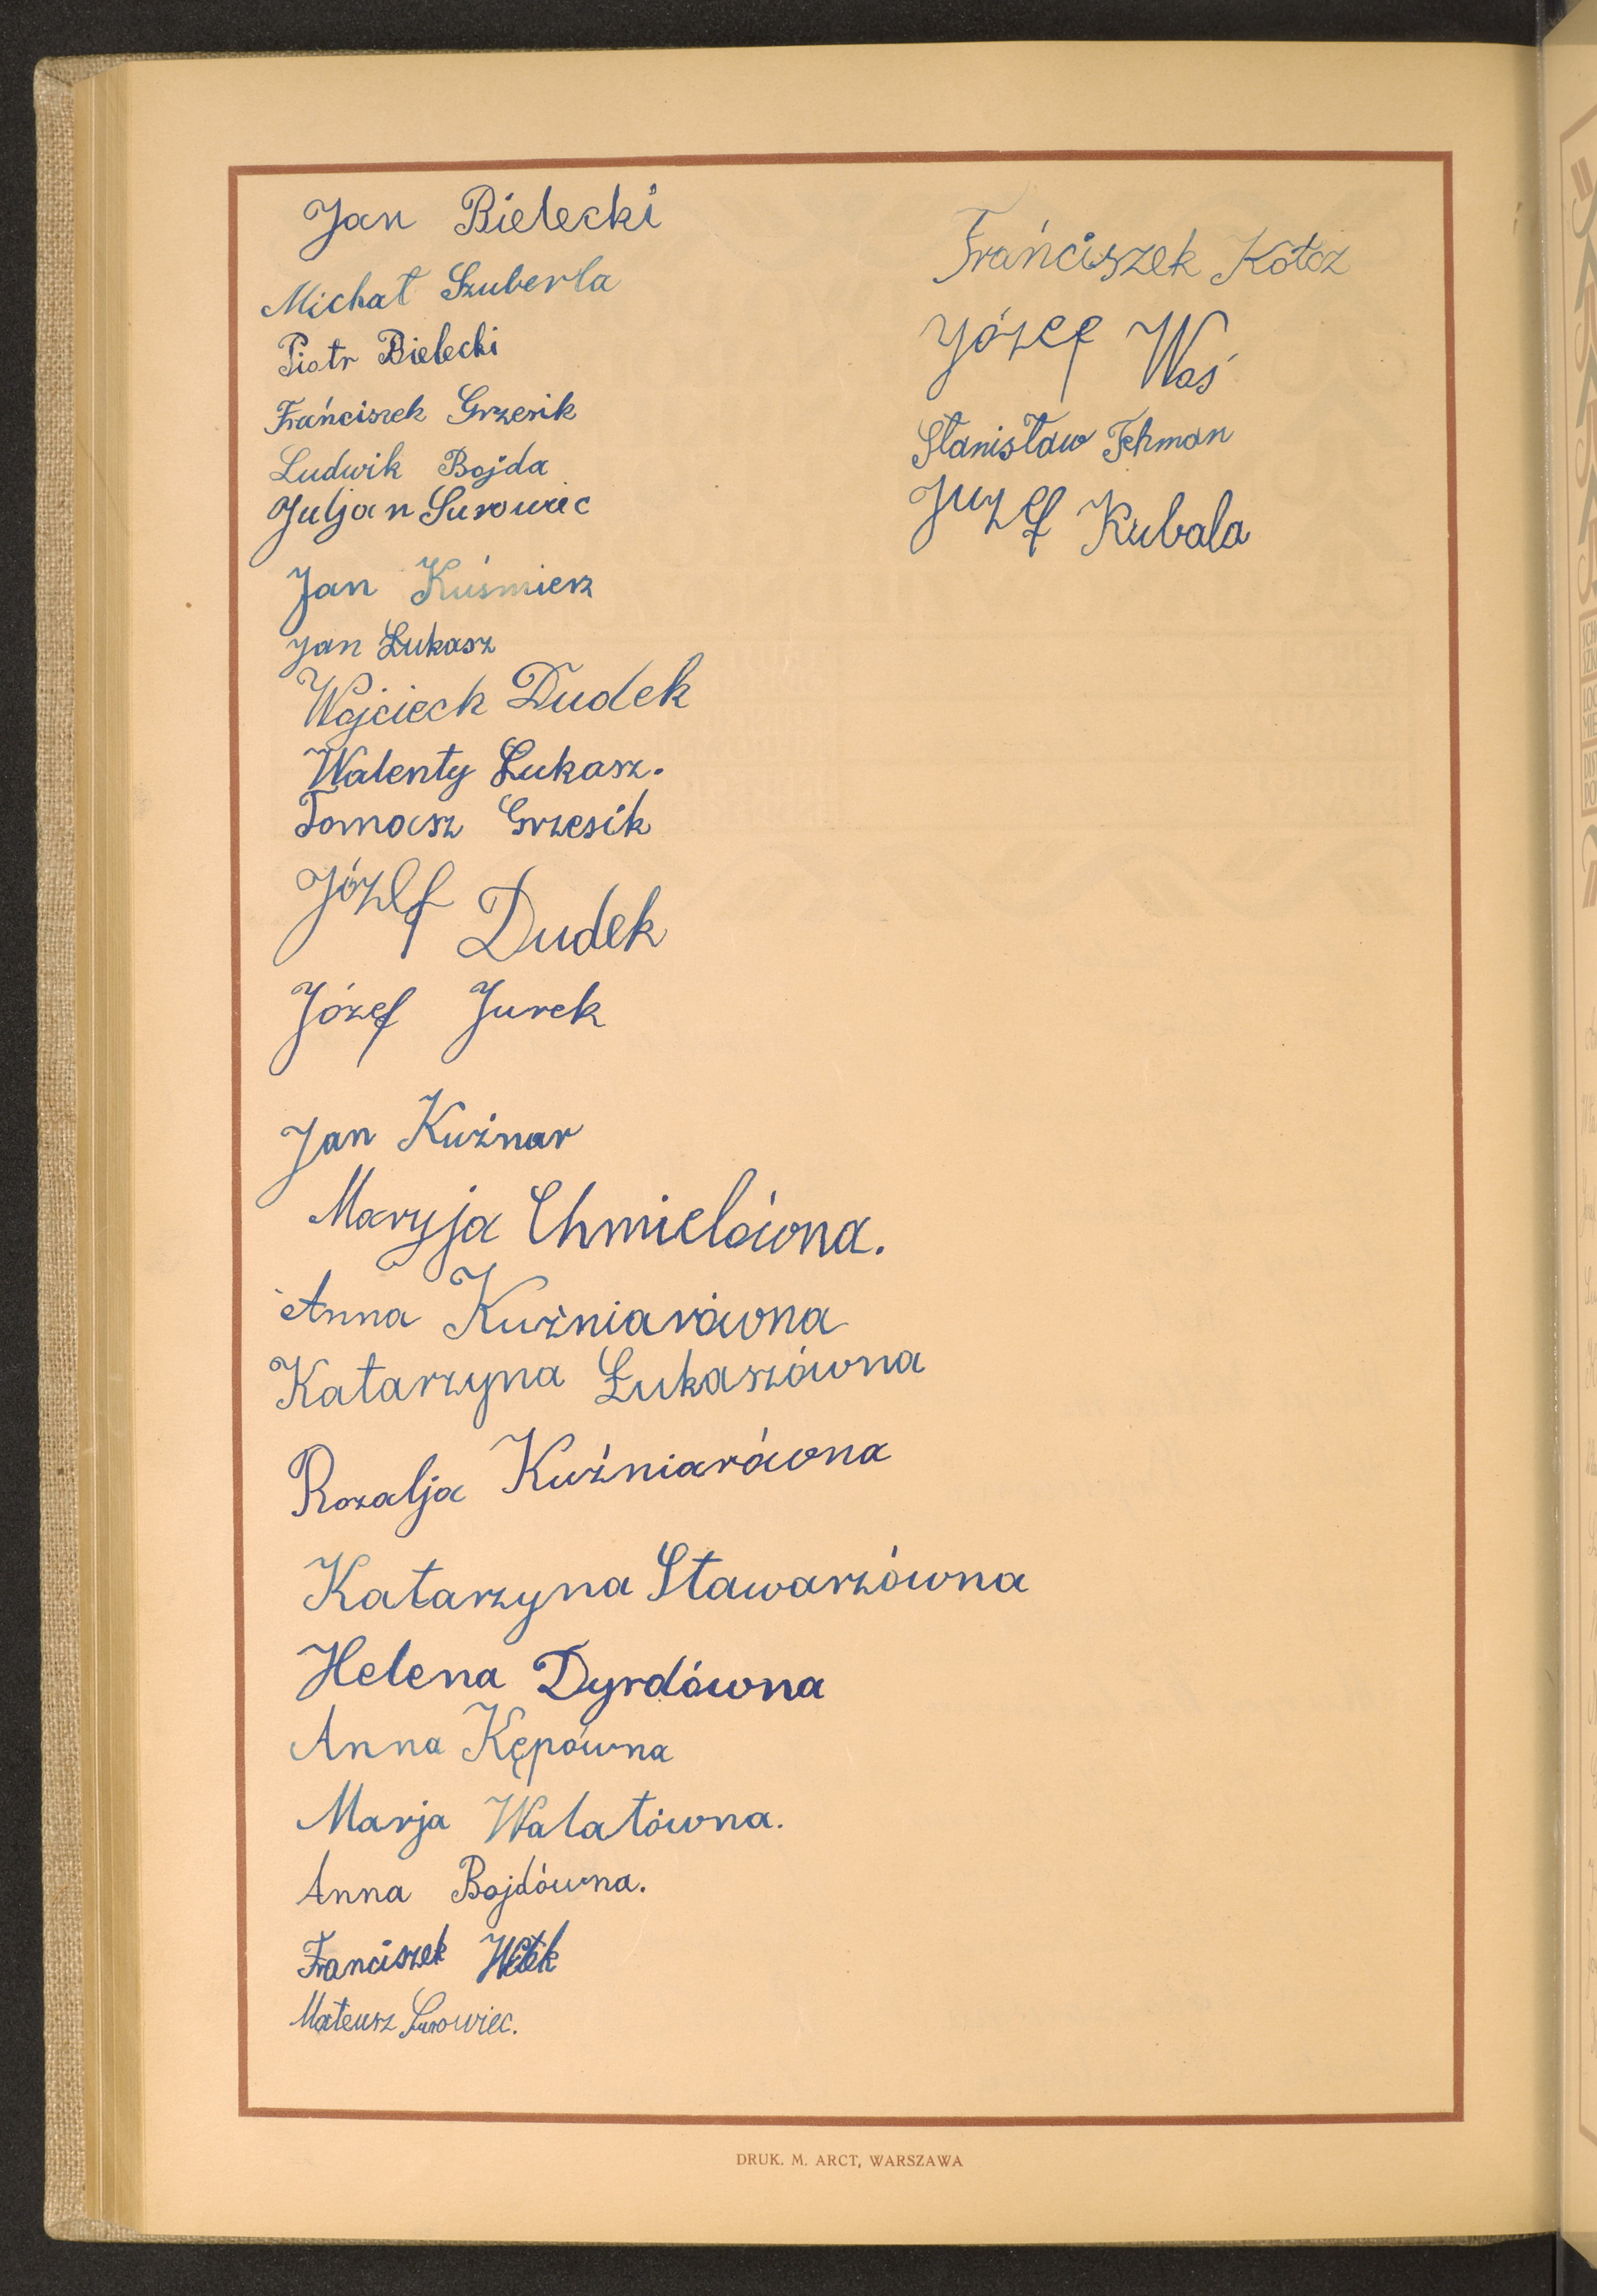 Jan Bielecki
Michał Szuberla
Piotr Bielecki
Frańciszek Grzesik
Ludwik Bojda
Juljan Surowiec
Jan Kuśmierz
Jan Łukasz
Wojciech Dudek
Walenty Łukasz.
Tomasz Grzesik
Józef Dudek
Józef Jurek
Jan Kuźnar
Maryja Chmielówna.
Anna Kuźniarówna
Katarzyna Łukaszówna
Rozalja Kuźniarówna
Katarzyna Stawarzówna
Helena Dyrdówna
Anna Kępówna
Marja Walatówna.
Anna Bojdówna.
Franciszek Witek
Mateusz Surowiec.
Frańciszek Kołcz
Józef Woś
Stanisław Fehman
Juzef Kubala
DRUK. M. ARCT, WARSZAWA